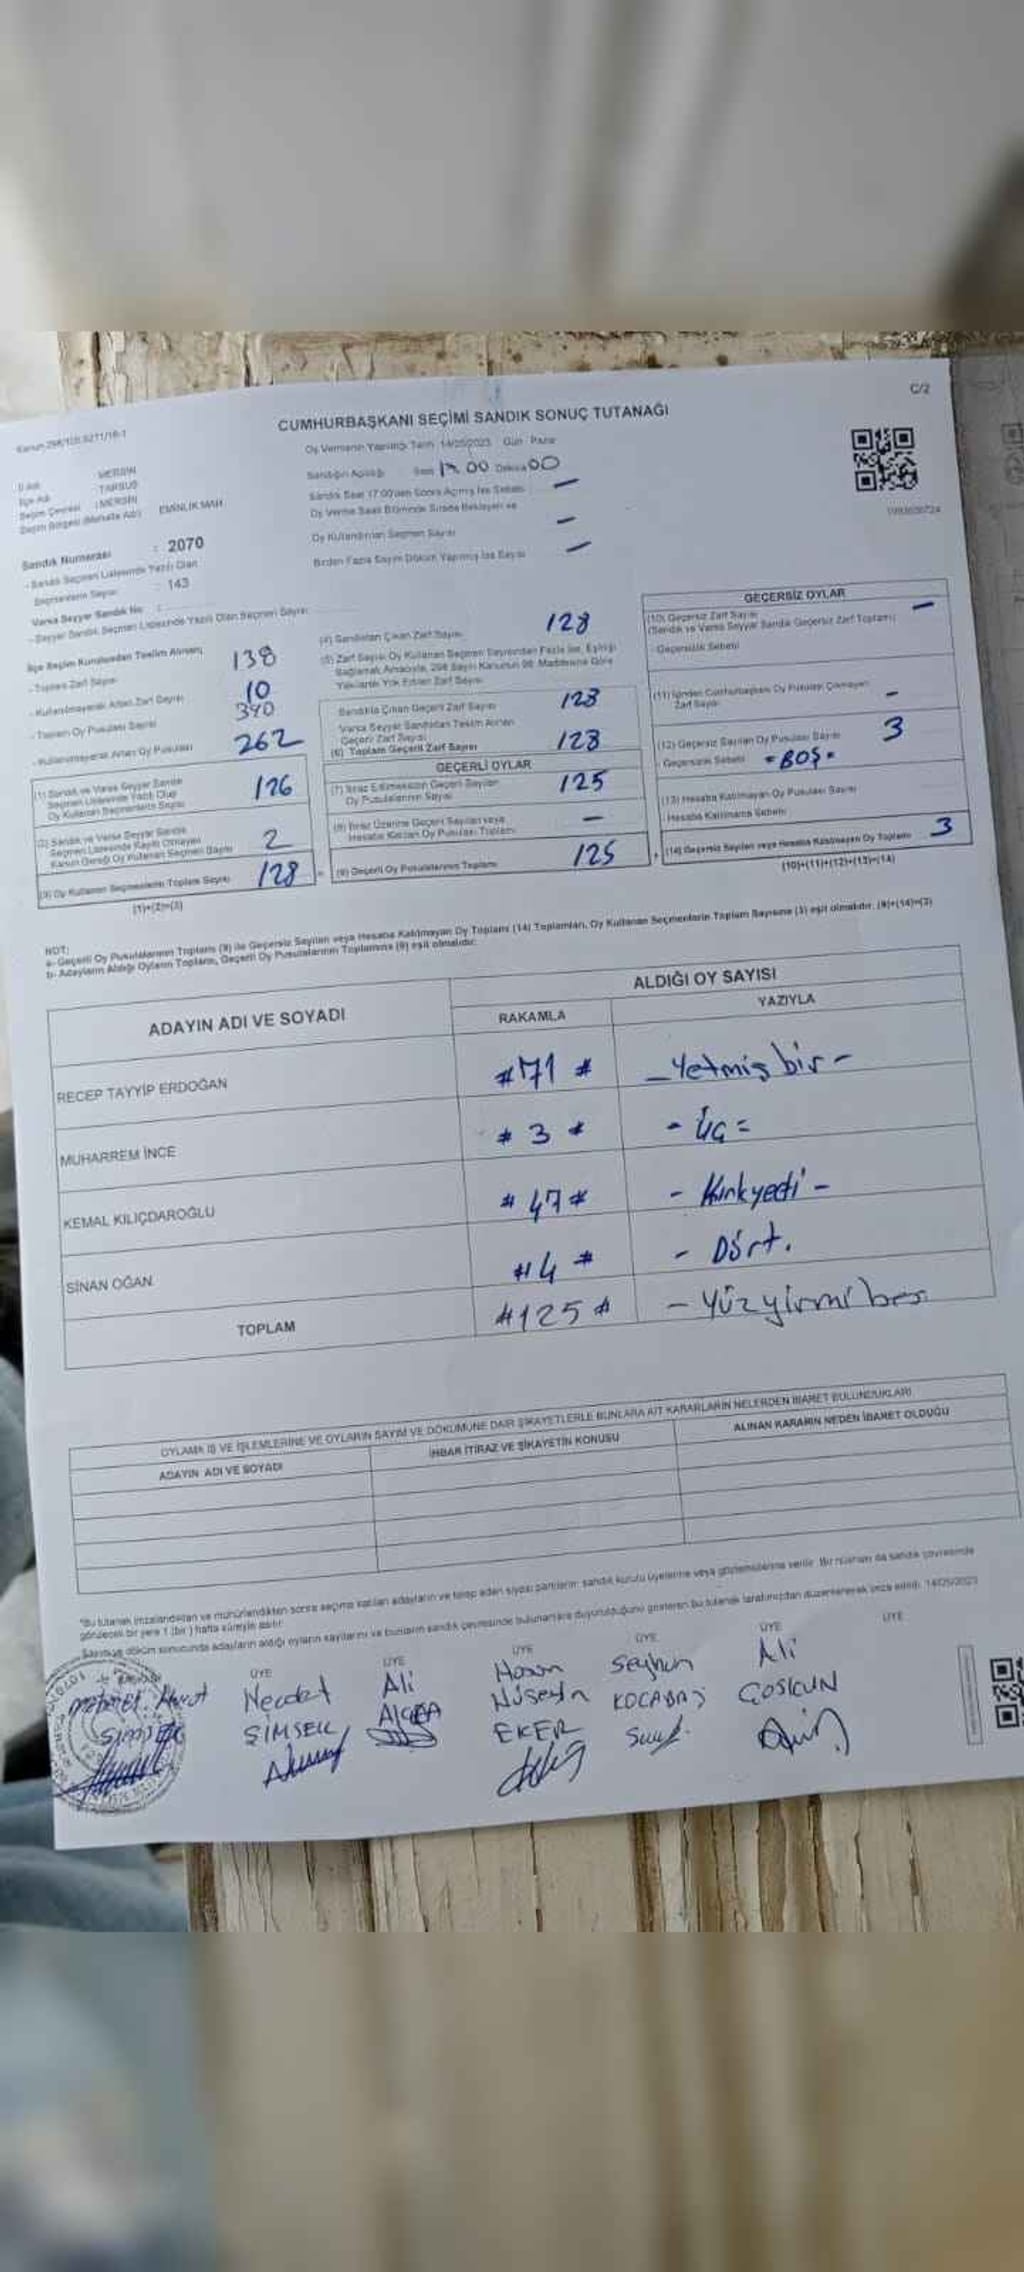 C/2
CUMHURBAŞKANI SEÇİMİ SANDIK SONUÇ TUTANAĞI
Oy Vermenin Yapıldığı Tarih 14/05/2023 Gün Pazar
İl Adı : MERSİN
İlçe Adı : TARSUS
Seçim Çevresi : MERSİN
Seçim Bölgesi (Mahalle Adı) : EMİNLİK MAH.
Sandığın Açıldığı Saat 17 00 Dakika 00
Sandık Saat 17:00'den Sonra Açılmış İse Sebebi -
Oy Verme Saati Bitiminde Sırada Bekleyen ve
Oy Kullandırılan Seçmen Sayısı -
Birden Fazla Sayım Döküm Yapılmış İse Sayısı -
Sandık Numarası : 2070
- Sandık Seçmen Listesinde Yazılı Olan
Seçmenlerin Sayısı : 143
Varsa Seyyar Sandık No :
- Seyyar Sandık Seçmen Listesinde Yazılı Olan Seçmen Sayısı:
İlçe Seçim Kurulundan Teslim Alınan;
- Toplam Zarf Sayısı 138
- Kullanılmayarak Artan Zarf Sayısı 10
- Toplam Oy Pusulası Sayısı 390
- Kullanılmayarak Artan Oy Pusulası 262
(1) Sandık ve Varsa Seyyar Sandık
Seçmen Listesinde Yazılı Olup
Oy Kullanan Seçmenlerin Sayısı 126
(2) Sandık ve Varsa Seyyar Sandık
Seçmen Listesinde Kayıtlı Olmayan
Kanun Gereği Oy Kullanan Seçmen Sayısı 2
(3) Oy Kullanan Seçmenlerin Toplam Sayısı 128
(1)+(2)=(3)
(4) Sandıktan Çıkan Zarf Sayısı 128
(5) Zarf Sayısı Oy Kullanan Seçmen Sayısından Fazla İse, Eşitliği
Sağlamak Amacıyla, 298 Sayılı Kanunun 98. Maddesine Göre
Yakılarak Yok Edilen Zarf Sayısı
Sandıkta Çıkan Geçerli Zarf Sayısı 128
Varsa Seyyar Sandıktan Teslim Alınan
Geçerli Zarf Sayısı
(6) Toplam Geçerli Zarf Sayısı 128
GEÇERLİ OYLAR
(7) İtiraz Edilmeksizin Geçerli Sayılan
Oy Pusulalarının Sayısı 125
(8) İtiraz Üzerine Geçerli Sayılan veya
Hesaba Katılan Oy Pusulası Toplamı -
(9) Geçerli Oy Pusulalarının Toplamı 125
GEÇERSİZ OYLAR
(10) Geçersiz Zarf Sayısı -
(Sandık ve Varsa Seyyar Sandık Geçersiz Zarf Toplamı)
Geçersizlik Sebebi
(11) İçinden Cumhurbaşkanı Oy Pusulası Çıkmayan
Zarf Sayısı -
(12) Geçersiz Sayılan Oy Pusulası Sayısı 3
- Geçersizlik Sebebi =BOŞ=
(13) Hesaba Katılmayan Oy Pusulası Sayısı
Hesaba Katılmama Sebebi
(14) Geçersiz Sayılan veya Hesaba Katılmayan Oy Toplamı 3
(10)+(11)+(12)+(13)=(14)
NOT:
a- Geçerli Oy Pusulalarının Toplamı (9) ile Geçersiz Sayılan veya Hesaba Katılmayan Oy Toplamı (14) Toplamları, Oy Kullanan Seçmenlerin Toplam Sayısına (3) eşit olmalıdır. (9)+(14)=(3)
b- Adayların Aldığı Oyların Toplamı, Geçerli Oy Pusulalarının Toplamına (9) eşit olmalıdır.
ADAYIN ADI VE SOYADI
ALDIĞI OY SAYISI
RAKAMLA
YAZIYLA
RECEP TAYYİP ERDOĞAN #71# -Yetmiş bir-
MUHARREM İNCE #3# - Üç =
KEMAL KILIÇDAROĞLU #47# - Kırkyedi -
SİNAN OĞAN #4# - Dört.
TOPLAM #125# - Yüzyirmibeş
OYLAMA İŞ VE İŞLEMLERİNE VE OYLARIN SAYIM VE DÖKÜMÜNE DAİR ŞİKAYETLERLE BUNLARA AİT KARARLARIN NELERDEN İBARET BULUNDUKLARI
ADAYIN ADI VE SOYADI
İHBAR İTİRAZ VE ŞİKAYETİN KONUSU
ALINAN KARARIN NEDEN İBARET OLDUĞU
*Bu tutanak imzalandıktan ve mühürlendikten sonra seçime katılan adayların ve talep eden siyasi partilerin sandık kurulu üyelerine veya gözlemcilerine verilir. Bir nüshası da sandık çevresinde
görülecek bir yere 1 (bir) hafta süreyle asılır.
Sayım ve döküm sonucunda adayların aldığı oyların sayılarını ve bunların sandık çevresinde bulunanlara duyurulduğunu gösteren bu tutanak tarafımızdan düzenlenerek imza edildi. 14/05/2023
ÜYE ÜYE ÜYE ÜYE ÜYE ÜYE
Mehmet Murat ŞİMŞEK
Necdet ŞİMŞEK
Ali
Hasan Hüseyin EKER
Seyhun KOCABAŞ
Ali COŞKUN